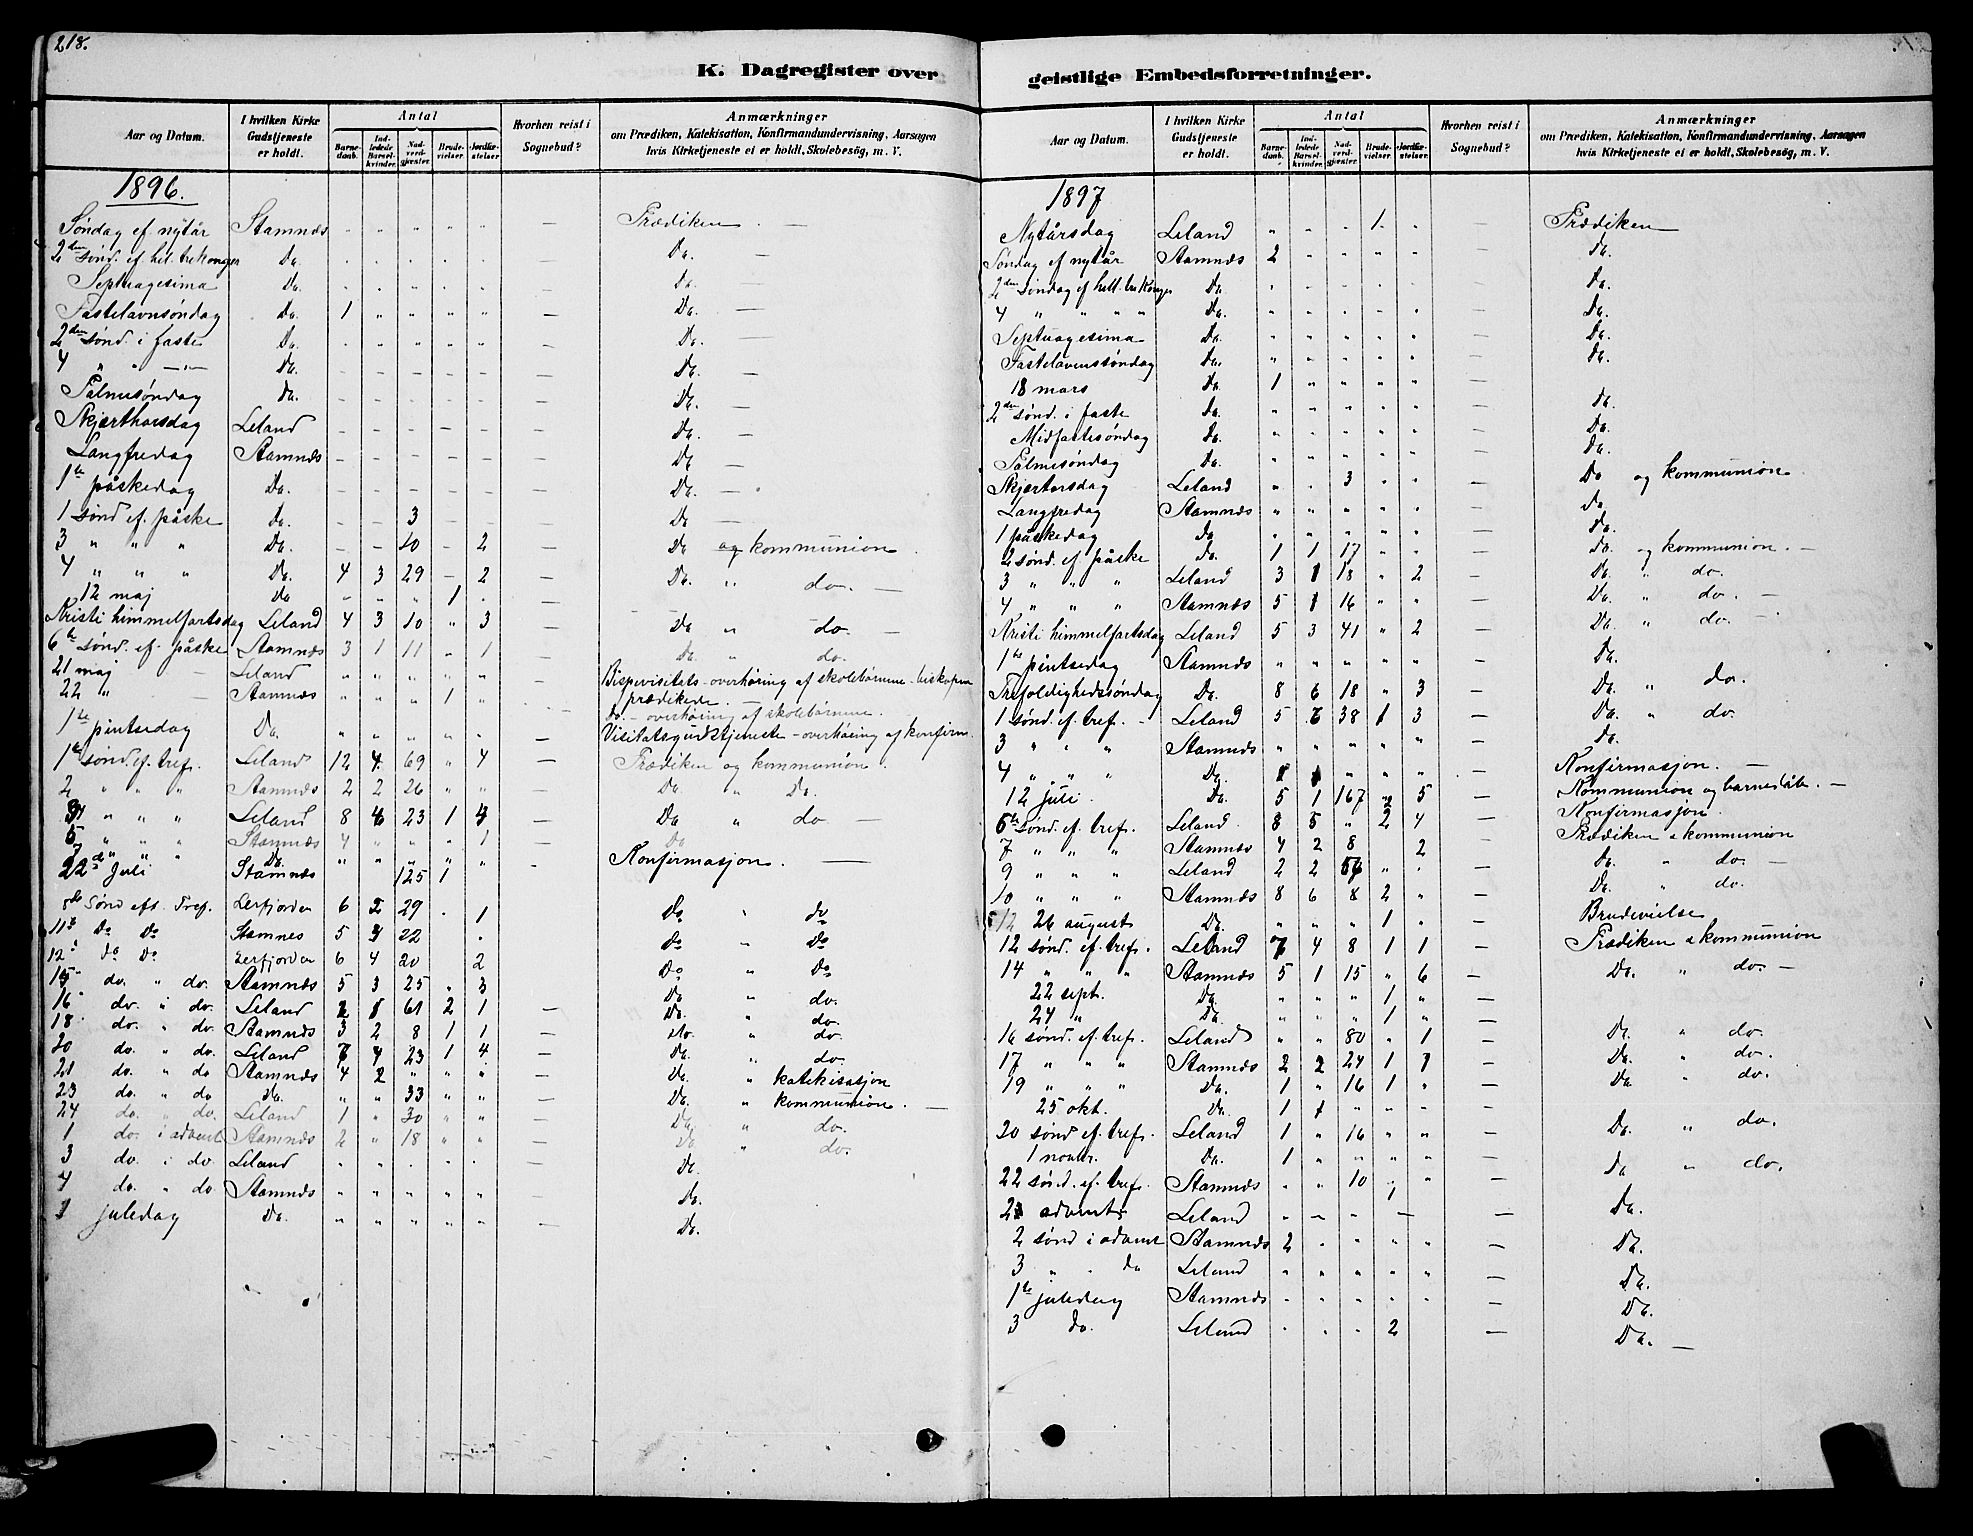 218.
K. Dagregister over
Aar og Datum. | I hvilken Kirke Gudstjeneste er holdt. | Antal | Barne-daab. | Ind-ledede Barsel-kvinder. | Nad-verd-gjæster. | Brude-vielser. | Jordfæ-stelser. | Hvorhen reist i Sognebud? | Anmærkninger om Prædiken, Katekisation, Konfirmandundervisning, Aarsagen hvis Kirketjeneste ei er holdt, Skolebesøg, m. V.
1896.
Søndag ef nytår | Stamnæs | " | " | " | " | " | — | Prædiken —
2den sønd. ef. hel. trekonger | Do. | " | " | " | " | " | — | Do. —
Septuagesima | Do. | " | " | " | " | " | — | Do. —
Fastelavnsøndag | Do. | 1 | " | " | " | " | — | Do. —
2den sønd. i faste | Do. | " | " | " | " | " | — | Do. —
4 " " —"— | Do. | — | — | — | — | — | — | Do. —
Palmesøndag | Do. | — | — | — | — | — | — | Do. —
Skjærthorsdag | Leland | — | — | — | — | — | — | Do. —
Langfredag | Stamnæs | — | — | — | — | — | — | Do. —
1te påskedag | Do. | — | — | — | — | — | — | Do. —
1 sønd ef. påske | Do. | — | — | 3 | — | — | — | Do —
3 " " " | Do. | — | — | 20 | — | 2 | — | Do og kommunion.
4 " " " | Do. | 4 | 3 | 29 | — | 2 | — | Do. " do. —
12 maj | Do | " | " | " | 1 | " | —
Kristi himmelfartsdag | Leland | 4 | 3 | 10 | " | 3 | — | Do " do. —
6te sønd. ef. påske | Stamnæs | 3 | 1 | 11 | " | 1 | — | Do. " do.
21 maj — | Leland | " | " | " | " | " | — | Bispevisitets-overhøring af skolebørnene - biskopen prædikede. —
22 " — | Stamnæs | " | " | " | 1 | " | — | do. - overhøring af skolebørnene.
1te pintsedag | Do. | " | " | " | " | " | — | Visitatsgudstjeneste - overhøring af konfirm.
1te sønd. ef. tref. | Leland | 12 | 4 | 69 | " | 4 | — | Prædiken og kommunion.
2 " " " | Stamnæs | 2 | 2 | 26 | " | " | — | Do " Do.
" " " | Leland | 8 | 6 | 23 | 1 | 4 | — | Do " do —
5 " " " | Stamnæs | 4 | " | " | " | 1 | — | Do
" " " | Do. | " | " | " | " | "
22de Juli | Stamnæs | 125 | 1 | Konfirmasjon. —
8de Sønd eft. Tref. | Leirfjorden | 6 | 2 | 29 | . | 1 | Do " do
11te Do Do | Stamnes | 5 | 4 | 22 | . | Do " Do
12te Do Do | Leirfjorden | 6 | 4 | 20 | 2 | Do " Do
15 do. " do. | Stamnæs | 5 | 3 | 25 | " | 3 | Do " do.
16 do. " do. | Leland | 2 | 1 | 61 | 2 | 1 | — | Do. " do.
18 do. " do. | Stamnæs | 3 | 2 | 8 | 1 | 1 | — | do. " do.
20 do. " do. | Leland | 7 | 4 | 23 | 1 | 4 | — | Do. " do.
21 do. " do | Stamnæs | 4 | 2 | " | " | " | — | Do. " katekisasjon
23 do. " do | Do. | " | " | 33 | " | " | — | Do. " kommunion. —
24 do. " do. | Leland | 1 | " | 30 | " | " | — | Do " do.
1 do. i advent | Stamnæs | 2 | " | 18 | " | " | — | Do " do.
3 do. i do. | Leland | " | " | " | " | " | — | Do.
4 do. " do. | Stamnæs | " | " | " | " | " | — | Do.
1 juledag | Do. | " | " | " | " | " | — | Do.
geistlige Embedsforretninger.
Aar og Datum. | I hvilken Kirke Gudstjeneste er holdt. | Antal | Barne-daab. | Ind-ledede Barsel-kvinder. | Nad-verd-gjæster. | Brude-vielser. | Jordfæ-stelser. | Hvorhen reist i Sognebud? | Anmærkninger om Prædiken, Katekisation, Konfirmandundervisning, Aarsagen hvis Kirketjeneste ei er holdt, Skolebesøg, m. V.
1897
Nytårsdag | Leland | " | " | " | 1. | " | — | Prædiken
Søndag ef nytår | Stamnæs | 2 | " | " | " | " | — | Do.
2den søndag ef hell. trekonger | Do. | " | " | " | " | " | — | Do.
4 " " " " | Do. | " | " | " | " | " | — | Do.
Septuagesima | Do. | " | " | " | " | " | — | Do.
Fastelavenssøndag | Do. | " | " | " | " | " | — | Do.
18 mars | Do. | 1 | " | " | " | " | —
2den sønd. i faste | Do. | " | " | " | " | " | — | Do.
Midfastesøndag | Do. | " | " | " | " | " | — | Do.
Palmesøndag | Do. | " | " | " | " | " | — | Do.
Skjærtorsdag | Leland | " | " | 3 | " | " | — | Do og kommunion.
Langfredag | Stamnæs | " | " | " | " | " | — | Do
1 påskedag | Do | " | " | " | " | " | — | Do.
2 sønd. ef påske | Do. | 1 | 1 | 17 | " | " | — | Do. og kommunion. —
3 " " " | Leland | 3 | 1 | 18 | " | 2 | — | Do. " do.
4 " " " | Stamnæs | 5 | 1 | 16 | " | " | — | Do. " do. —
Kristi himmelfartsdag | Leland | 5 | 3 | 41 | " | 2 | — | Do. " do. —
1te pintsedag | Stamnæs | " | " | " | " | " | — | Do.
Trefoldighedssøndag | Do. | 8 | 6 | 18 | " | 3 | — | Do. " do.
1 sønd. ef. tref. - | Leland | 5 | 6 | 38 | 1 | 3 | — | Do. " do.
3 " " " | Stamnæs | " | " | " | " | " | — | Do.
4 " " " | Do. | 1 | 1 | " | " | " | — | Konfirmasjon. —
12 juli. | Do. | 5 | 1 | 167 | 2 | 5 | — | Kommunion og barnedåb. —
6te sønd. ef. tref. | Leland. | 8 | 5 | " | 2 | 4 | — | Konfirmasjon
7 " " " | Stamnæs | 4 | 2 | 8 | 2 | — | Prædiken & kommunion
9 " " " | Leland | 2 | 2 | 56 | " | " | — | Do. " do. —
10 " " " | Stamnæs | 8 | 6 | 8 | 2 | " | — | Do. " do.
26 august | Do. | " | " | " | 1 | " | — | Brudevielse
12 sønd. ef. tref. | Leland | 7 | 4 | 8 | 1 | 1 | — | Prædiken & kommunion
14 " " " | Stamnæs | 5 | 1 | 15 | " | 6 | — | Do. " do. —
22 sept. | Do. | " | " | " | 1 | " | —
24 " | Do. | " | " | " | 1 | " | —
16 sønd. ef. tref. | Leland | " | " | 80 | " | 1 | — | Do. " do.
17 " " " | Stamnæs | 2 | 2 | 24 | 1 | 1 | — | Do. " do.
19 " " " | Do. | 1 | " | 16 | 1 | " | — | Do. " do.
25 okt. | Do. | 1 | 1 | " | " | " | —
20 sønd ef. tref. | Leland | 1 | " | 16 | " | " | — | Do. " do.
1 novbr. | Do. | 1 | " | " | " | " | —
22 sønd. ef. tref. | Stamnæs | " | " | 10 | 1 | " | — | Do " do.
advents | Leland | " | — | " | — | — | Do.
2 sønd i advent | Stamnæs | 2 | " | " | " | " | — | Do.
3 " " do | Leland | " | " | " | " | " | — | Do.
1te juledag | Stamnæs | " | " | " | " | " | — | Do.
3 do. | Leland | " | " | " | 2 | — | Do. —